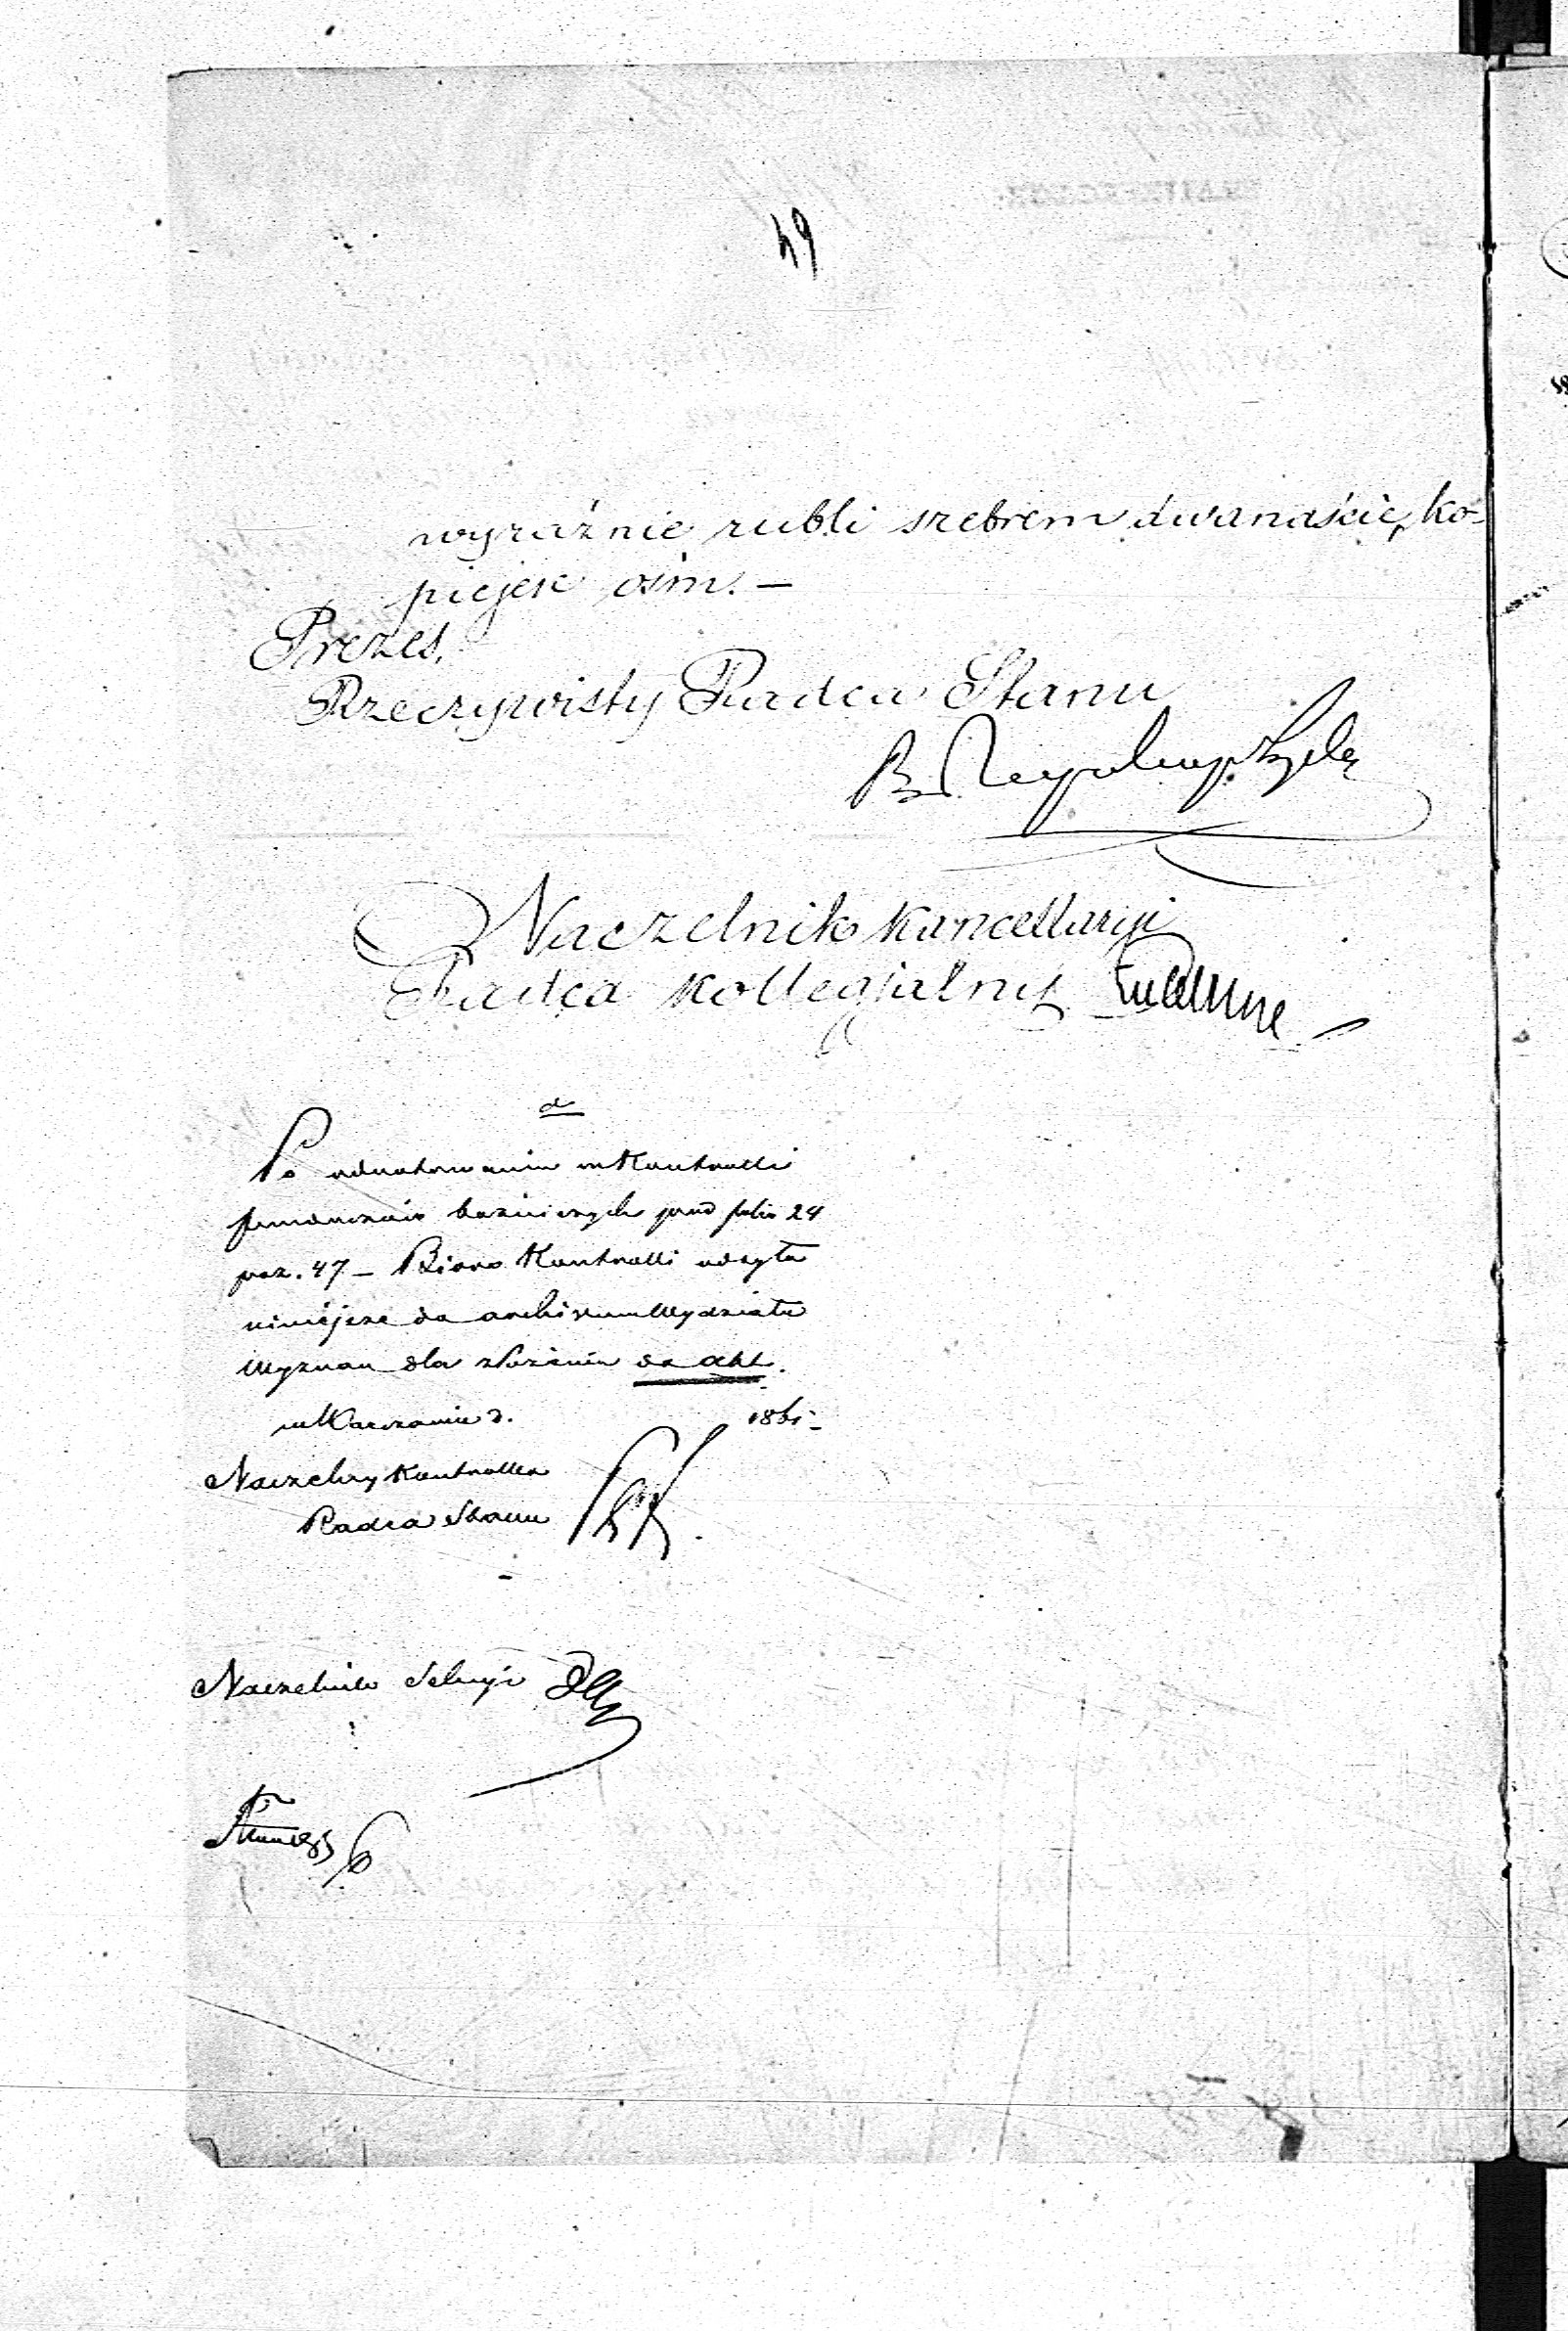 49
wyraźnie rubli srebrem dwanaście, ko-
piejek ośm. —
Prezes,
Rzeczywisty Radca Stanu
Naczelnik Kancellaryi
Radca Kollegjalny
Po odnotowaniu w Kontrolli
funduszów bóżniczych pod folio 24
poz. 47 — Biuro Kontrolli odsyła
niniejsze do archiwum Wydziału
Wyznań dla złożenia do akt.
w Warszawie d. 1861
Naczelny Kontroller
Radca Stanu
Naczelnik Sekcyi